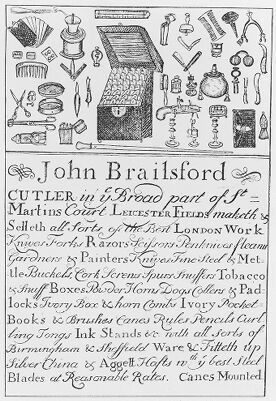 John Brailsford
CUTLER in yͤ Broad part of Sᵗ=
Martins Court LEICESTER FIELDS maketh &
Selleth all Sorts of the Best LONDON Work
Knives Forks Razors Scissors Penknives fleams
Gardners & Painters Knives Fine Steel & Met=
tle Buckels, Cork Screws Spurs Snuffers Tobacco
& Snuff Boxes Powder Horns Dogs Collers & Pad
locks Ivory Box & horn Combs Ivory Pocket-
Books & Brushes Canes Rules Pencils Curl
ling Tongs Ink Stands &c with all sorts of
Birmingham & Sheffield Ware & Fitteth up
Silver China & Aggett Hafts wᵗʰ yᵉ best Steel
Blades at Reasonable Rates. Canes Mounted.